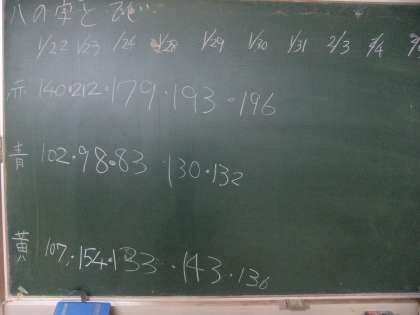 八の字と
1/22 1/23 1/24 1/28 1/29 1/30 1/31 2/3 2/4
赤 140・212・179・193・196
青 102・98・83・130・132
黄 107・154・133・143・136